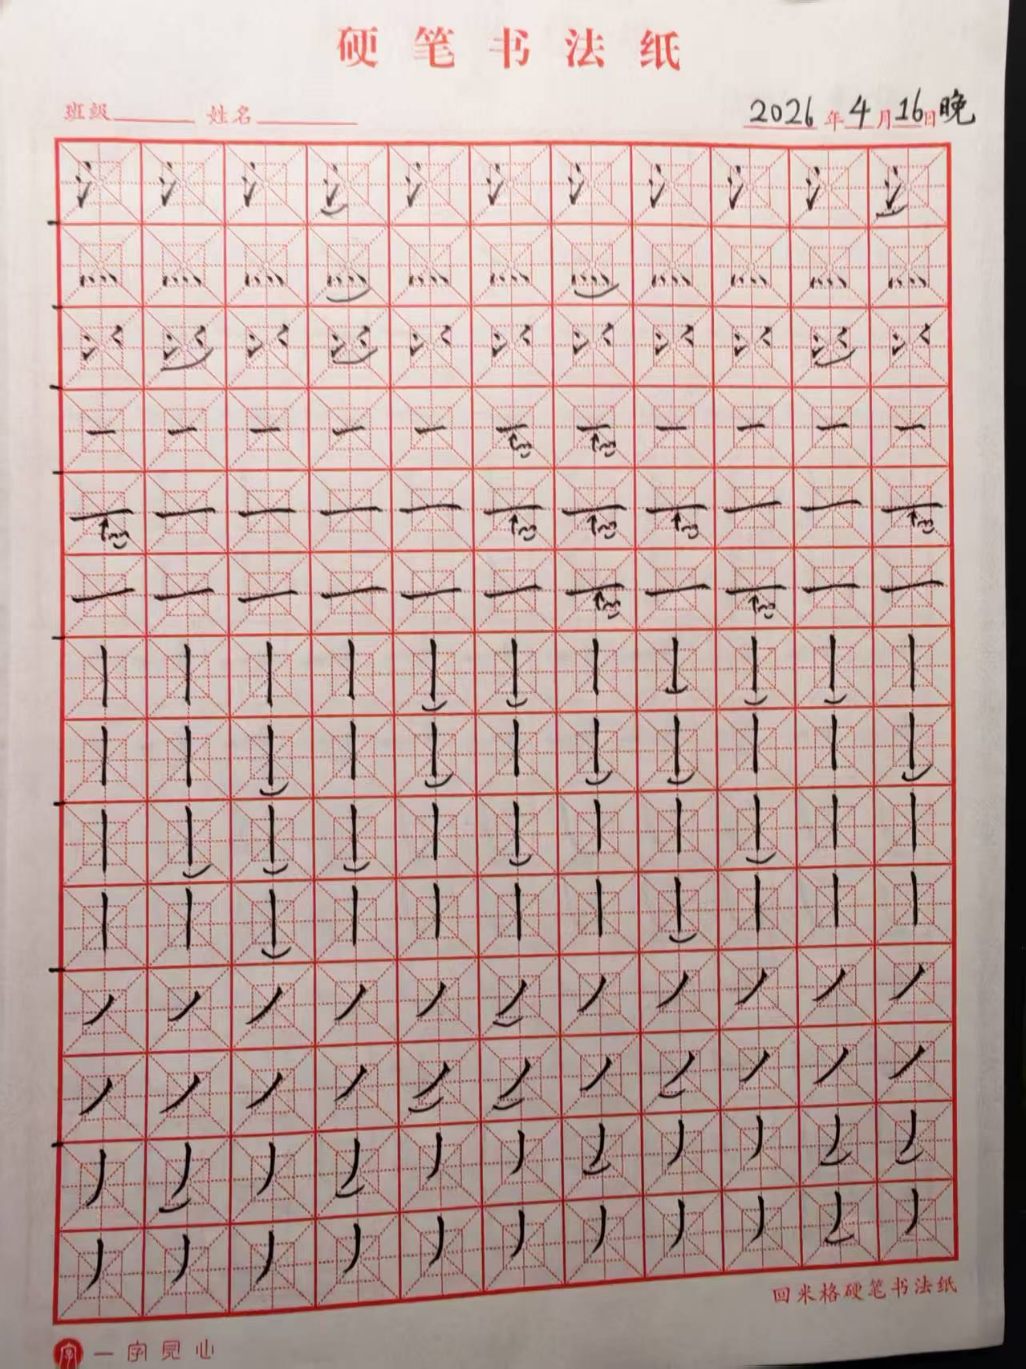 硬笔书法纸
班级 姓名 2026年4月16日晚
回米格硬笔书法纸
一字见心